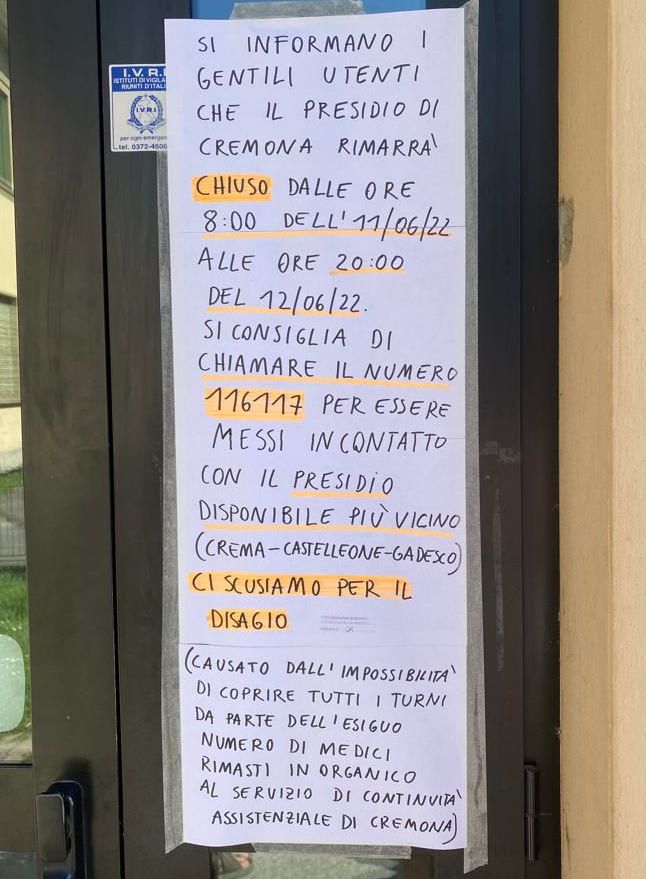 SI INFORMANO I
GENTILI UTENTI
CHE IL PRESIDIO DI
CREMONA RIMARRÀ
CHIUSO DALLE ORE
8:00 DELL'11/06/22
ALLE ORE 20:00
DEL 12/06/22.
SI CONSIGLIA DI
CHIAMARE IL NUMERO
116117 PER ESSERE
MESSI IN CONTATTO
CON IL PRESIDIO
DISPONIBILE PIÙ VICINO
(CREMA-CASTELLEONE-GADESCO)
CI SCUSIAMO PER IL
DISAGIO
(CAUSATO DALL'IMPOSSIBILITÀ
DI COPRIRE TUTTI I TURNI
DA PARTE DELL'ESIGUO
NUMERO DI MEDICI
RIMASTI IN ORGANICO
AL SERVIZIO DI CONTINUITÀ
ASSISTENZIALE DI CREMONA)
I.V.R.I.
ISTITUTI DI VIGILA
RIUNITI D'ITAL
I.V.R.I.
per ogni emergen
tel. 0372-4506